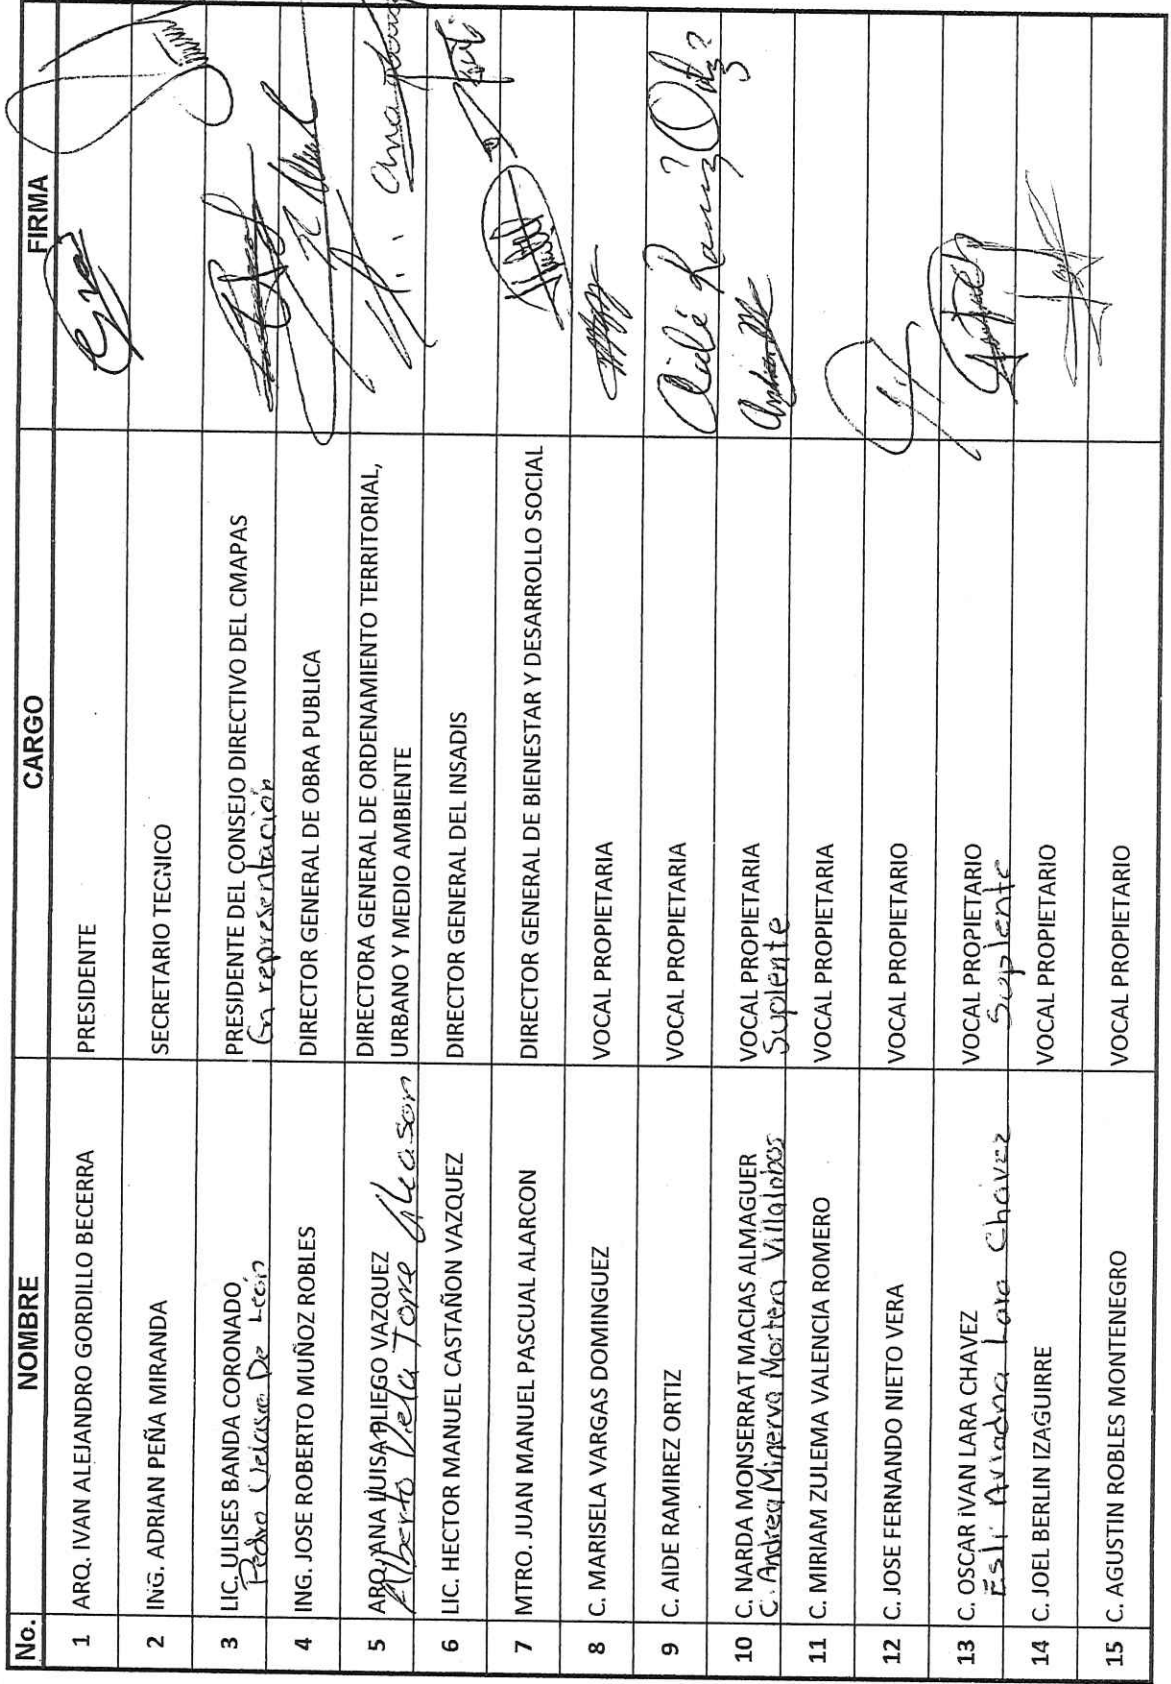 No. NOMBRE CARGO FIRMA
1 ARQ. IVAN ALEJANDRO GORDILLO BECERRA PRESIDENTE
2 ING. ADRIAN PEÑA MIRANDA SECRETARIO TECNICO
3 LIC. ULISES BANDA CORONADO PRESIDENTE DEL CONSEJO DIRECTIVO DEL CMAPAS
Pedro Velasco De León En representación
4 ING. JOSE ROBERTO MUÑOZ ROBLES DIRECTOR GENERAL DE OBRA PUBLICA
5 ARQ. ANA LUISA PLIEGO VAZQUEZ DIRECTORA GENERAL DE ORDENAMIENTO TERRITORIAL,
Alberto Vela Torre URBANO Y MEDIO AMBIENTE
6 LIC. HECTOR MANUEL CASTAÑON VAZQUEZ DIRECTOR GENERAL DEL INSADIS
7 MTRO. JUAN MANUEL PASCUAL ALARCON DIRECTOR GENERAL DE BIENESTAR Y DESARROLLO SOCIAL
8 C. MARISELA VARGAS DOMINGUEZ VOCAL PROPIETARIA
9 C. AIDE RAMIREZ ORTIZ VOCAL PROPIETARIA
10 C. NARDA MONSERRAT MACIAS ALMAGUER VOCAL PROPIETARIA
C. Andrea Minerva Mortera Villalobos Suplente
11 C. MIRIAM ZULEMA VALENCIA ROMERO VOCAL PROPIETARIA
12 C. JOSE FERNANDO NIETO VERA VOCAL PROPIETARIO
13 C. OSCAR IVAN LARA CHAVEZ VOCAL PROPIETARIO
Esli Ariadna Lara Chavez Suplente
14 C. JOEL BERLIN IZAGUIRRE VOCAL PROPIETARIO
15 C. AGUSTIN ROBLES MONTENEGRO VOCAL PROPIETARIO